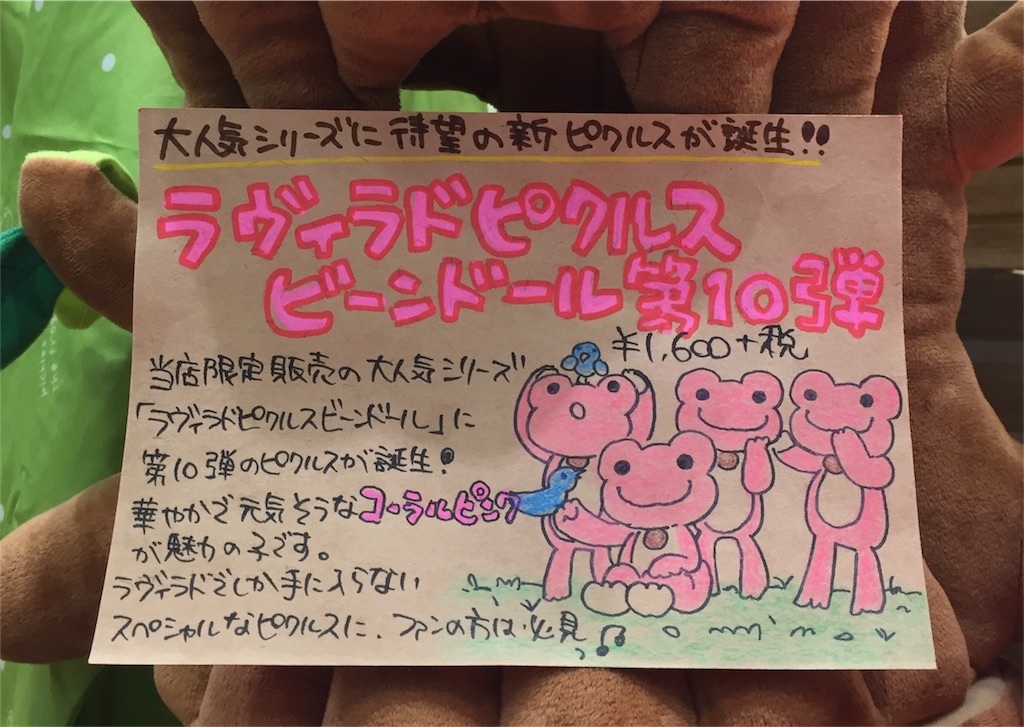 大人気シリーズに待望の新ピクルスが誕生!!
ラヴィラドピクルス
ビーンドール第10弾
¥1,600+税
当店限定販売の大人気シリーズ
「ラヴィラドピクルスビーンドール」に
第10弾のピクルスが誕生!
華やかで元気そうなコーラルピンク
が魅力の子です。
ラヴィラドでしか手に入らない
スペシャルなピクルスに、ファンの方は必見っ♫